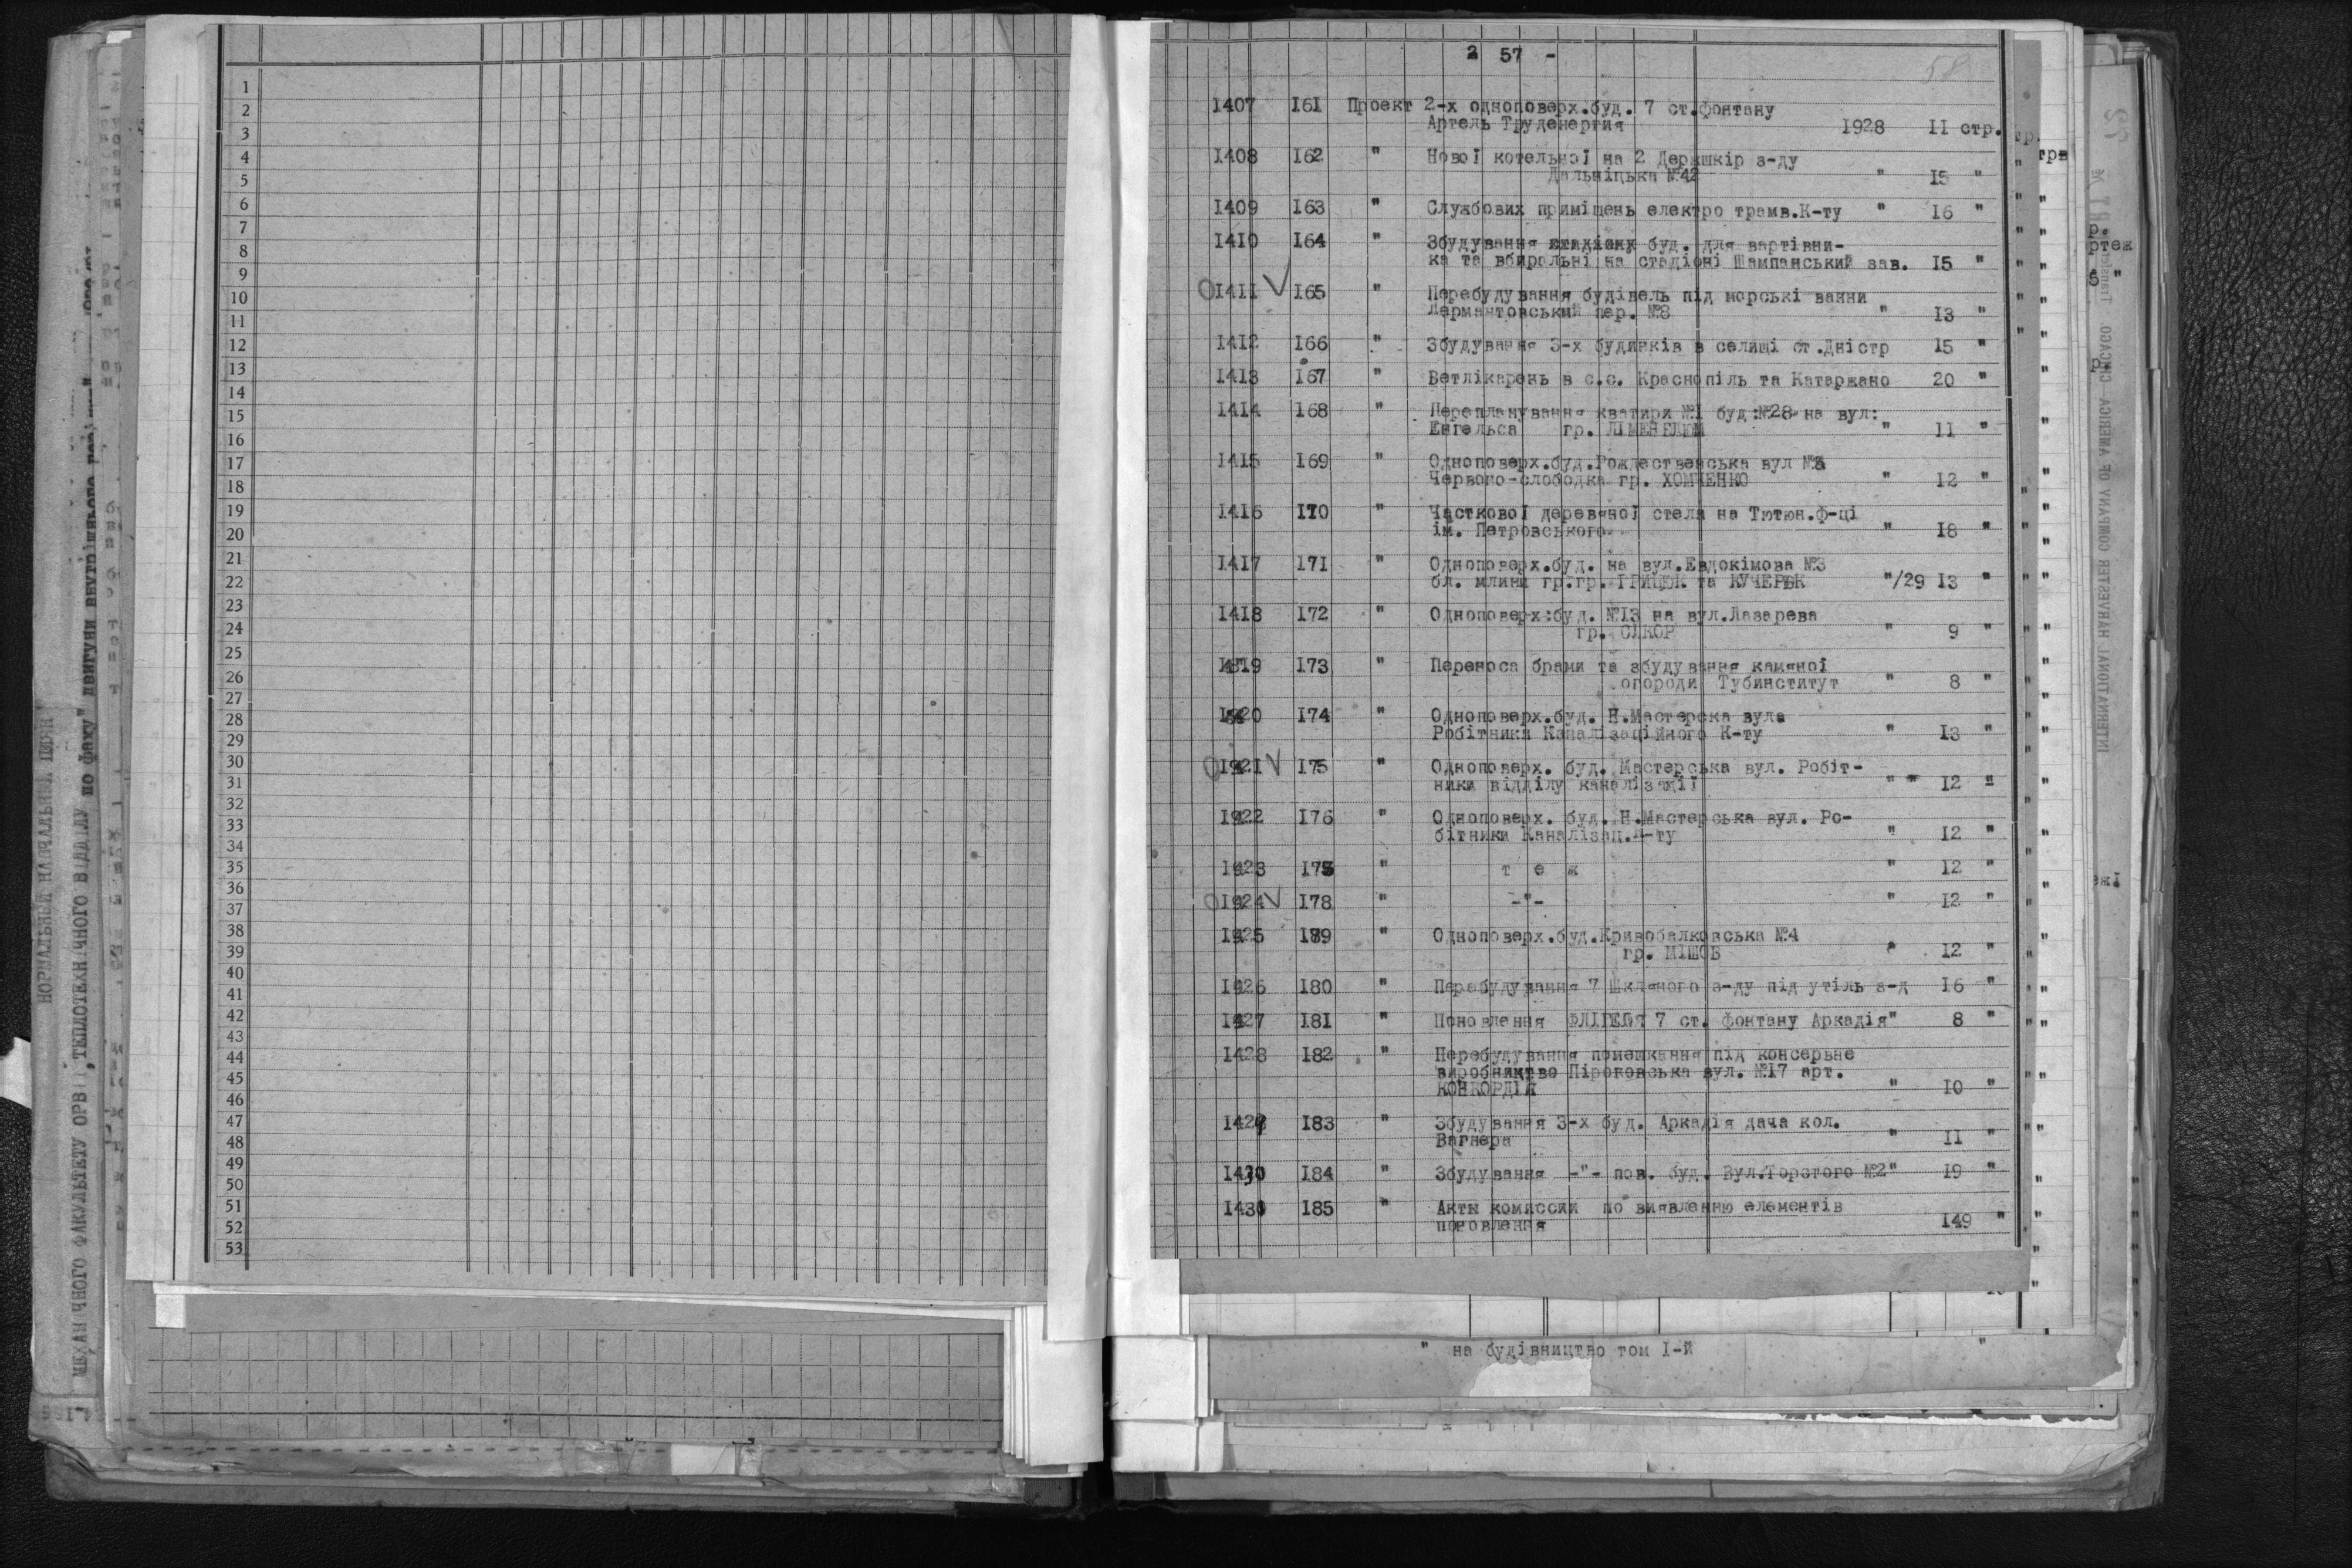 2 57 -
58
1407 161 Проект 2-х одноповерх.буд. 7 ст.фонтану
Артель Труденергия 1928 11 стр.
1408 162 " Нової котельної на 2 Держшкір з-ду
Дальніцька №42 " 15 "
1409 163 " Службових приміщень електро трамв.К-ту " 16 "
1410 164 " Збудування буд. для вартівни-
ка та вбиральні на стадіоні Шампанський зав. 15 "
1411 V 165 " Перебудування будівель під морські ванни
Лермантовський пер. №8 " 13 "
1412 166 " Збудування 3-х будинків в селищі ст.Дністр 15 "
1413 167 " Ветлікарень в с.с. Краснопіль та Катаржано 20 "
1414 168 " Перепланування кватири №1 буд:№28 на вул:
Енгельса гр. " 11 "
1415 169 " Одноповерх.буд.Рождественська вул
Червоно-слободка гр. ХОМЧЕНКО " 12 "
1416 170 " Часткової деревяної стелі на Тютюн.ф-ці
ім. Петровського " 18 "
1417 171 " Одноповерх.буд. на вул.Евдокімова №3
бл. млини гр.гр. ГРИЦЮК та КУЧЕРЮК "/29 13 "
1418 172 " Одноповерх:буд. №13 на вул.Лазарева
гр. " 9 "
1419 173 " Переноса брами та збудування камяної
огороди Тубинститут " 8 "
1420 174 " Одноповерх.буд. Н.Мастерска вул
Робітники Каналізаційного К-ту " 13 "
1421 V 175 " Одноповерх. буд. Мастерська вул. Робіт-
ники відділу каналізації " " 12 "
1422 176 " Одноповерх. буд. Н.Мастерська вул. Ро-
бітники Каналізац.К-ту " 12 "
1423 177 " т е ж " 12 "
1424 V 178 " -"- " 12 "
1425 179 " Одноповерх.буд.Кривобалковська №4
гр. МІШОВ " 12 "
1426 180 " Перебудування 7 Шкляного з-ду під утіль з-д 16 "
1427 181 " Поновлення ФЛІГЕЛЯ 7 ст. фонтану Аркадія" 8 "
1428 182 " Перебудування помешкання під консервне
виробництво Піроговська вул. №17 арт.
КОНКОРДІЯ " 10 "
1429 183 " Збудування 3-х буд. Аркадія дача кол.
Вагнера " 11 "
1430 184 " Збудування -"- пов. буд. Вул.Торстого №2" 19 "
1431 185 " Акты комиссии по виявленню елементів
поновлення 149 "
" на будівництво том 1-й "
1
2
3
4
5
6
7
8
9
10
11
12
13
14
15
16
17
18
19
20
21
22
23
24
25
26
27
28
29
30
31
32
33
34
35
36
37
38
39
40
41
42
43
44
45
46
47
48
49
50
51
52
53
НОРМАЛЬНИЙ НАВЧАЛЬНИЙ ПЛЯН
ФАКУЛЬТЕТУ ТЕПЛОТЕХНІЧНОГО ВІДДІЛУ по фаху" двигуни внутрішнього
INTERNATIONAL HARVESTER COMPANY OF AMERICA CHICAGO